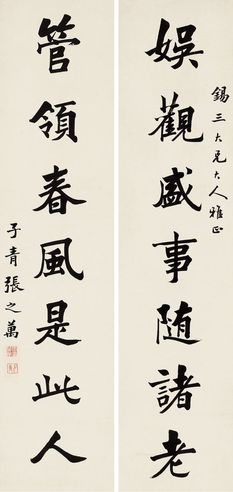 錫三大兄大人雅正
娛觀盛事随諸老
管領春風是此人
子青張之萬